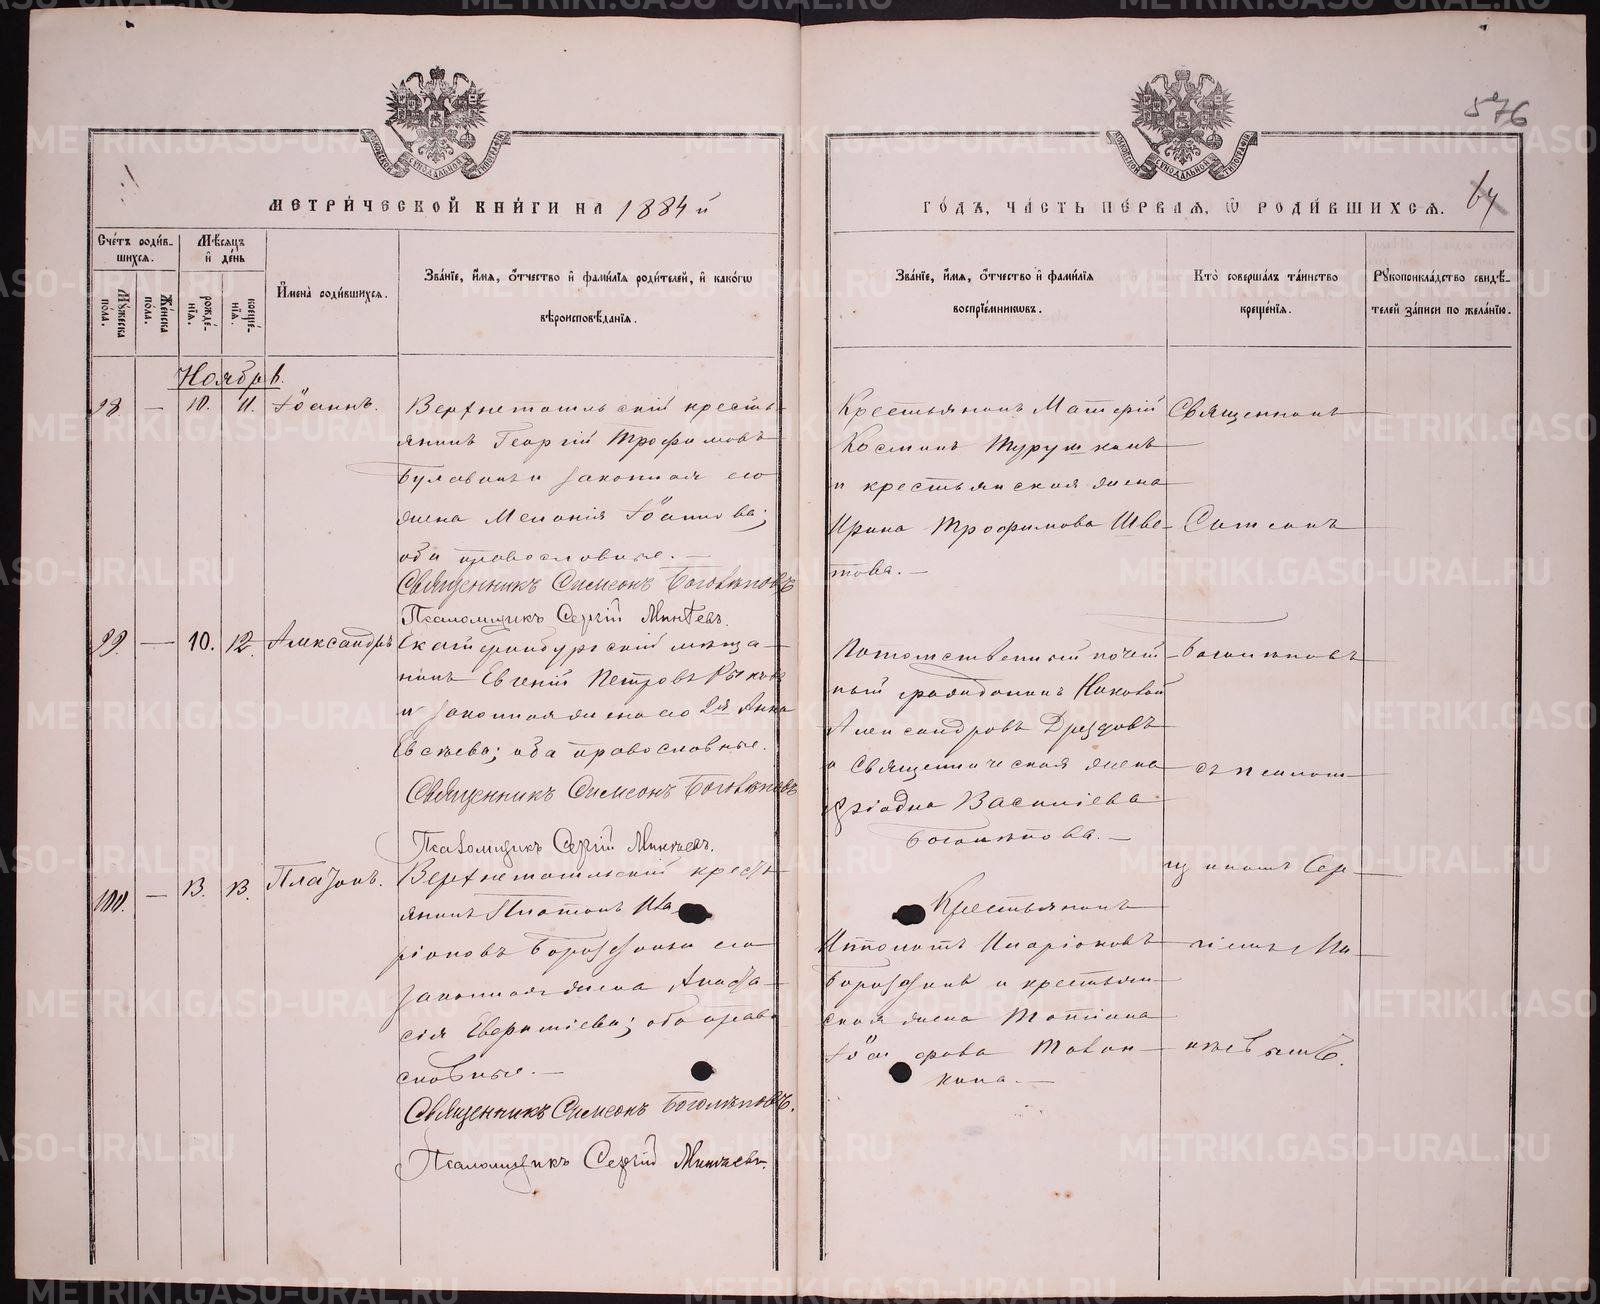 576
МЕТРИ́ЧЕСКОЙ КНИ́ГИ НА 1884 й
ГО́ДЪ, ЧА́СТЬ ПЕ́РВАЯ, Ѡ РОДИ́ВШИХСЯ.
Сче́тъ роди́в-
шихся.
Мѣ́сяцъ
и҆ де́нь
Му́жеска
по́ла.
Же́нска
по́ла.
рожде́-
нїя.
креще́-
нїя.
И҆мена̀ роди́вшихся.
Зва́нїе, и҆́мя, ѻ҆́тчество и҆ фами́лїя роди́телей, и҆ како́гѡ
вѣроисповѣ́данїя.
Зва́нїе, и҆́мя, ѻ҆́тчество и҆ фами́лїя
воспрїе́мникѡвъ.
Кто̀ соверша́лъ та́инство
креще́нїя.
Рꙋкоприкла́дство свидѣ́-
телей за́писи по жела́нїю.
Ноябрь.
98. — 10. 11. Іоаннъ.
Верхнетагильскій кресть-
янинъ Георгій Трофимовъ
и законная его
жена Меланія Іоаннова;
оба православные. —
Священникъ Симеонъ Боголѣповъ
Псаломщикъ Сергій Минѣевъ.
Крестьянинъ
Косминъ
и крестьянская жена
Ирина Трофимова Шве-
това. —
Священникъ
Симеонъ
99. — 10. 12. Александръ
Екатеринбургскій мѣща-
нинъ Евгеній Петровъ
и законная жена его 2я Анна
Евсѣева; оба православные.
Священникъ Симеонъ Боголѣповъ
Псаломщикъ Сергій Минѣевъ.
Потомственный почет-
ный гражданинъ Николай
Александровъ Дрездовъ
и Священническая жена
Аріадна Василіева
Боголѣпова. —
Боголѣповъ
съ псалом-
100. — 13. 13. Платонъ.
Верхнетагильскій кресть-
янинъ Платонъ Ила
ріоновъ его
законная жена Анаста-
сія; оба право-
славные. —
Священникъ Симеонъ Боголѣповъ.
Псаломщикъ Сергій Минѣевъ.
Крестьянинъ
Ипполитъ Иларіоновъ
и крестьян-
ская жена Татіана
кина. —
щикомъ Сер-
гіемъ Ми-
нѣевымъ.